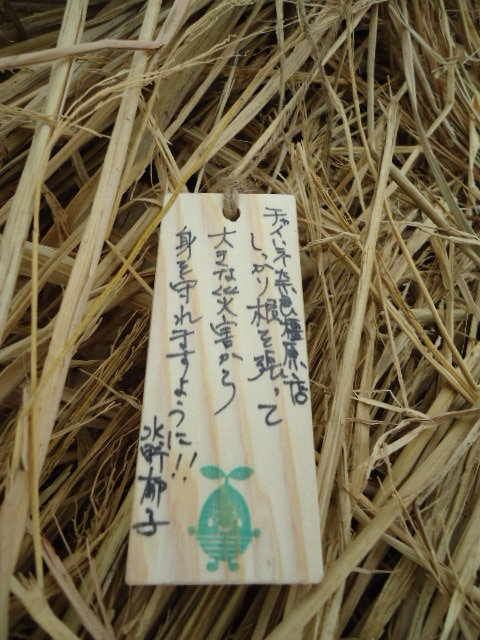 チャイハネ奈良橿原店
しっかり根を張って
大きな災害から
身を守れますように!!
水野郁子